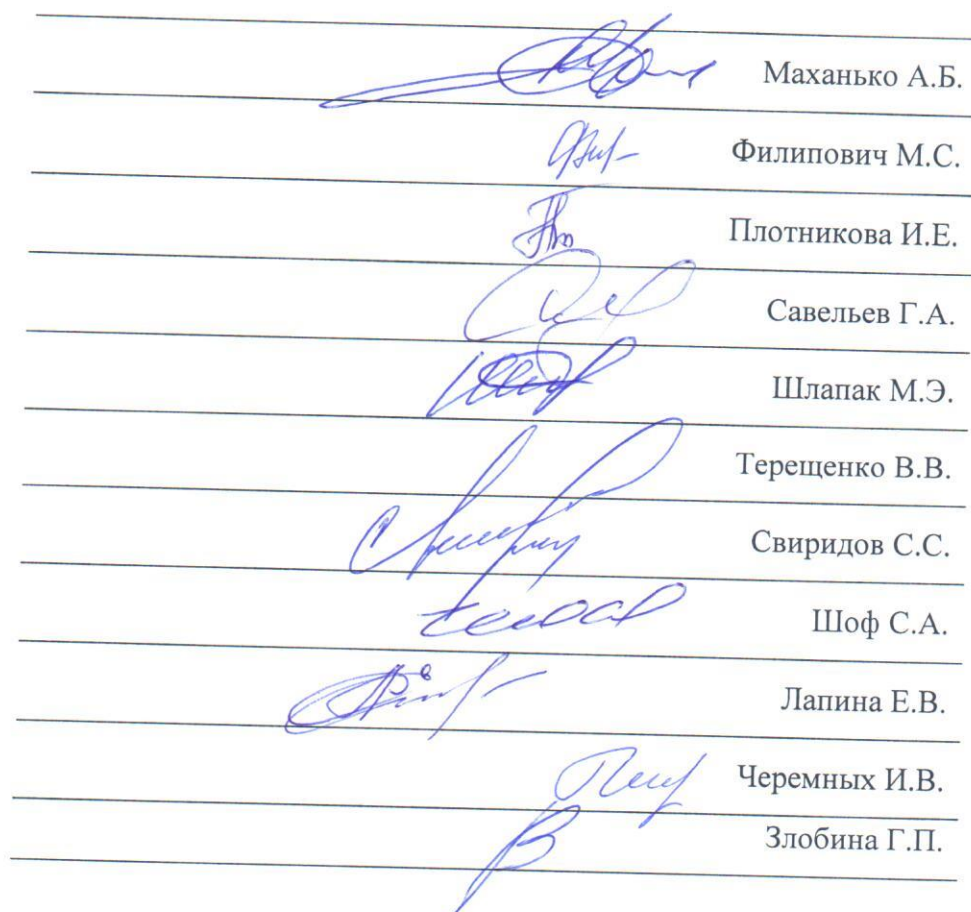 Маханько А.Б.
Филипович М.С.
Плотникова И.Е.
Савельев Г.А.
Шлапак М.Э.
Терещенко В.В.
Свиридов С.С.
Шоф С.А.
Лапина Е.В.
Черемных И.В.
Злобина Г.П.